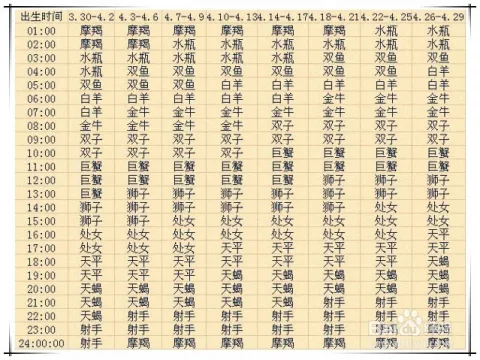 出生时间 3.30-4.2 4.3-4.6 4.7-4.9 4.10-4.13 4.14-4.17 4.18-4.21 4.22-4.25 4.26-4.29
01:00 摩羯 摩羯 摩羯 摩羯 摩羯 摩羯 水瓶 水瓶
02:00 摩羯 摩羯 水瓶 水瓶 水瓶 水瓶 水瓶 水瓶
03:00 水瓶 水瓶 水瓶 水瓶 水瓶 双鱼 双鱼 双鱼
04:00 水瓶 双鱼 双鱼 双鱼 双鱼 双鱼 双鱼 白羊
05:00 双鱼 双鱼 双鱼 白羊 白羊 白羊 白羊 白羊
06:00 白羊 白羊 白羊 白羊 白羊 金牛 金牛 金牛
07:00 白羊 金牛 金牛 金牛 金牛 金牛 金牛 金牛
08:00 金牛 金牛 金牛 金牛 双子 双子 双子 双子
09:00 双子 双子 双子 双子 双子 双子 双子 双子
10:00 双子 双子 双子 双子 巨蟹 巨蟹 巨蟹 巨蟹
11:00 巨蟹 巨蟹 巨蟹 巨蟹 巨蟹 巨蟹 巨蟹 巨蟹
12:00 巨蟹 巨蟹 巨蟹 巨蟹 巨蟹 狮子 狮子 狮子
13:00 巨蟹 狮子 狮子 狮子 狮子 狮子 狮子 狮子
14:00 狮子 狮子 狮子 狮子 狮子 狮子 处女 处女
15:00 狮子 狮子 处女 处女 处女 处女 处女 处女
16:00 处女 处女 处女 处女 处女 处女 处女 天平
17:00 处女 处女 处女 天平 天平 天平 天平 天平
18:00 天平 天平 天平 天平 天平 天平 天平 天蝎
19:00 天平 天平 天平 天蝎 天蝎 天蝎 天蝎 天蝎
20:00 天蝎 天蝎 天蝎 天蝎 天蝎 天蝎 天蝎 天蝎
21:00 天蝎 天蝎 天蝎 天蝎 天蝎 射手 射手 射手
22:00 天蝎 射手 射手 射手 射手 射手 射手 射手
23:00 射手 射手 射手 射手 射手 射手 摩羯
24:00:00 射手 摩羯 摩羯 摩羯 摩羯 摩羯 摩羯 摩羯